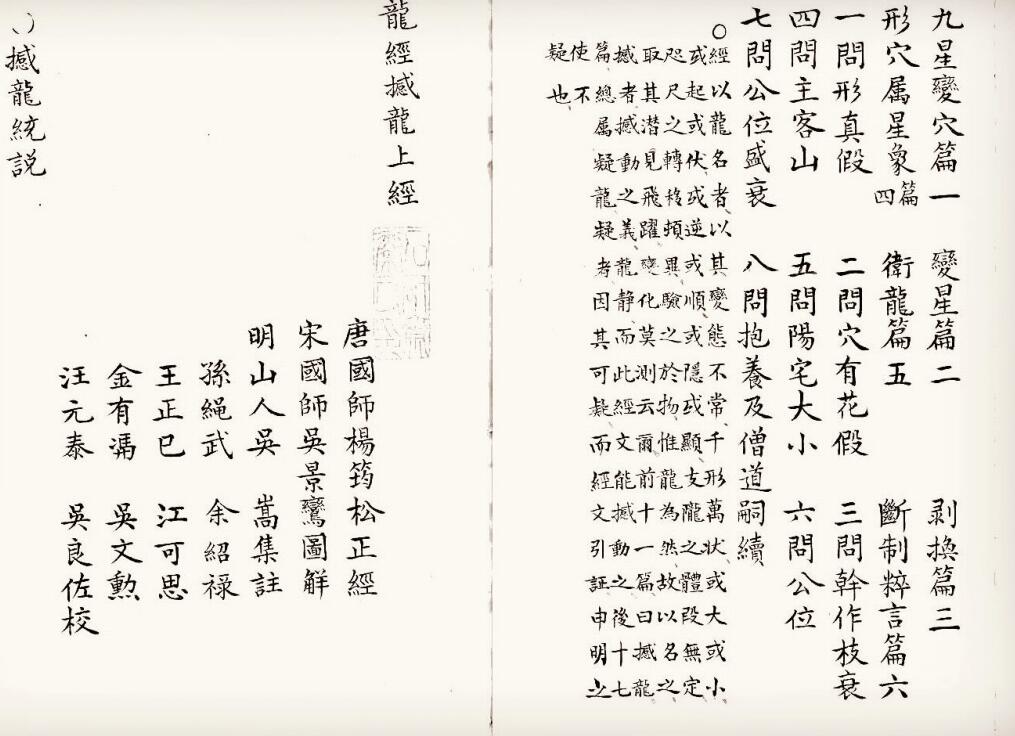 九星變穴篇一 變星篇二 剥換篇三
形穴属星象篇四 衛龍篇五 斷制粹言篇六
一問形真假 二問穴有花假 三問幹作枝衰
四問主客山 五問陽宅大小 六問公位
七問公位盛衰 八問抱養及僧道嗣續
○經以龍名者以其變態不常千形萬狀或大或小
或起或伏或逆或順或隱或顯支隴之體段無定
咫尺之轉移頻異驗之於物惟龍為然故以名之
取其潛見飛躍變化莫測云爾前十一篇曰撼龍
撼者撼動之義龍静而此經文能撼動之後十七
篇總属疑龍疑者因其可疑而經文引証申明之
使不
疑也
龍經撼龍上經
唐國師楊筠松正經
宋國師吳景鸞圖觧
明山人吳 嵩集註
孫繩武 余紹禄
王正巳 江可思
金有 吳文勲
汪元泰 吳良佐校
撼龍統説